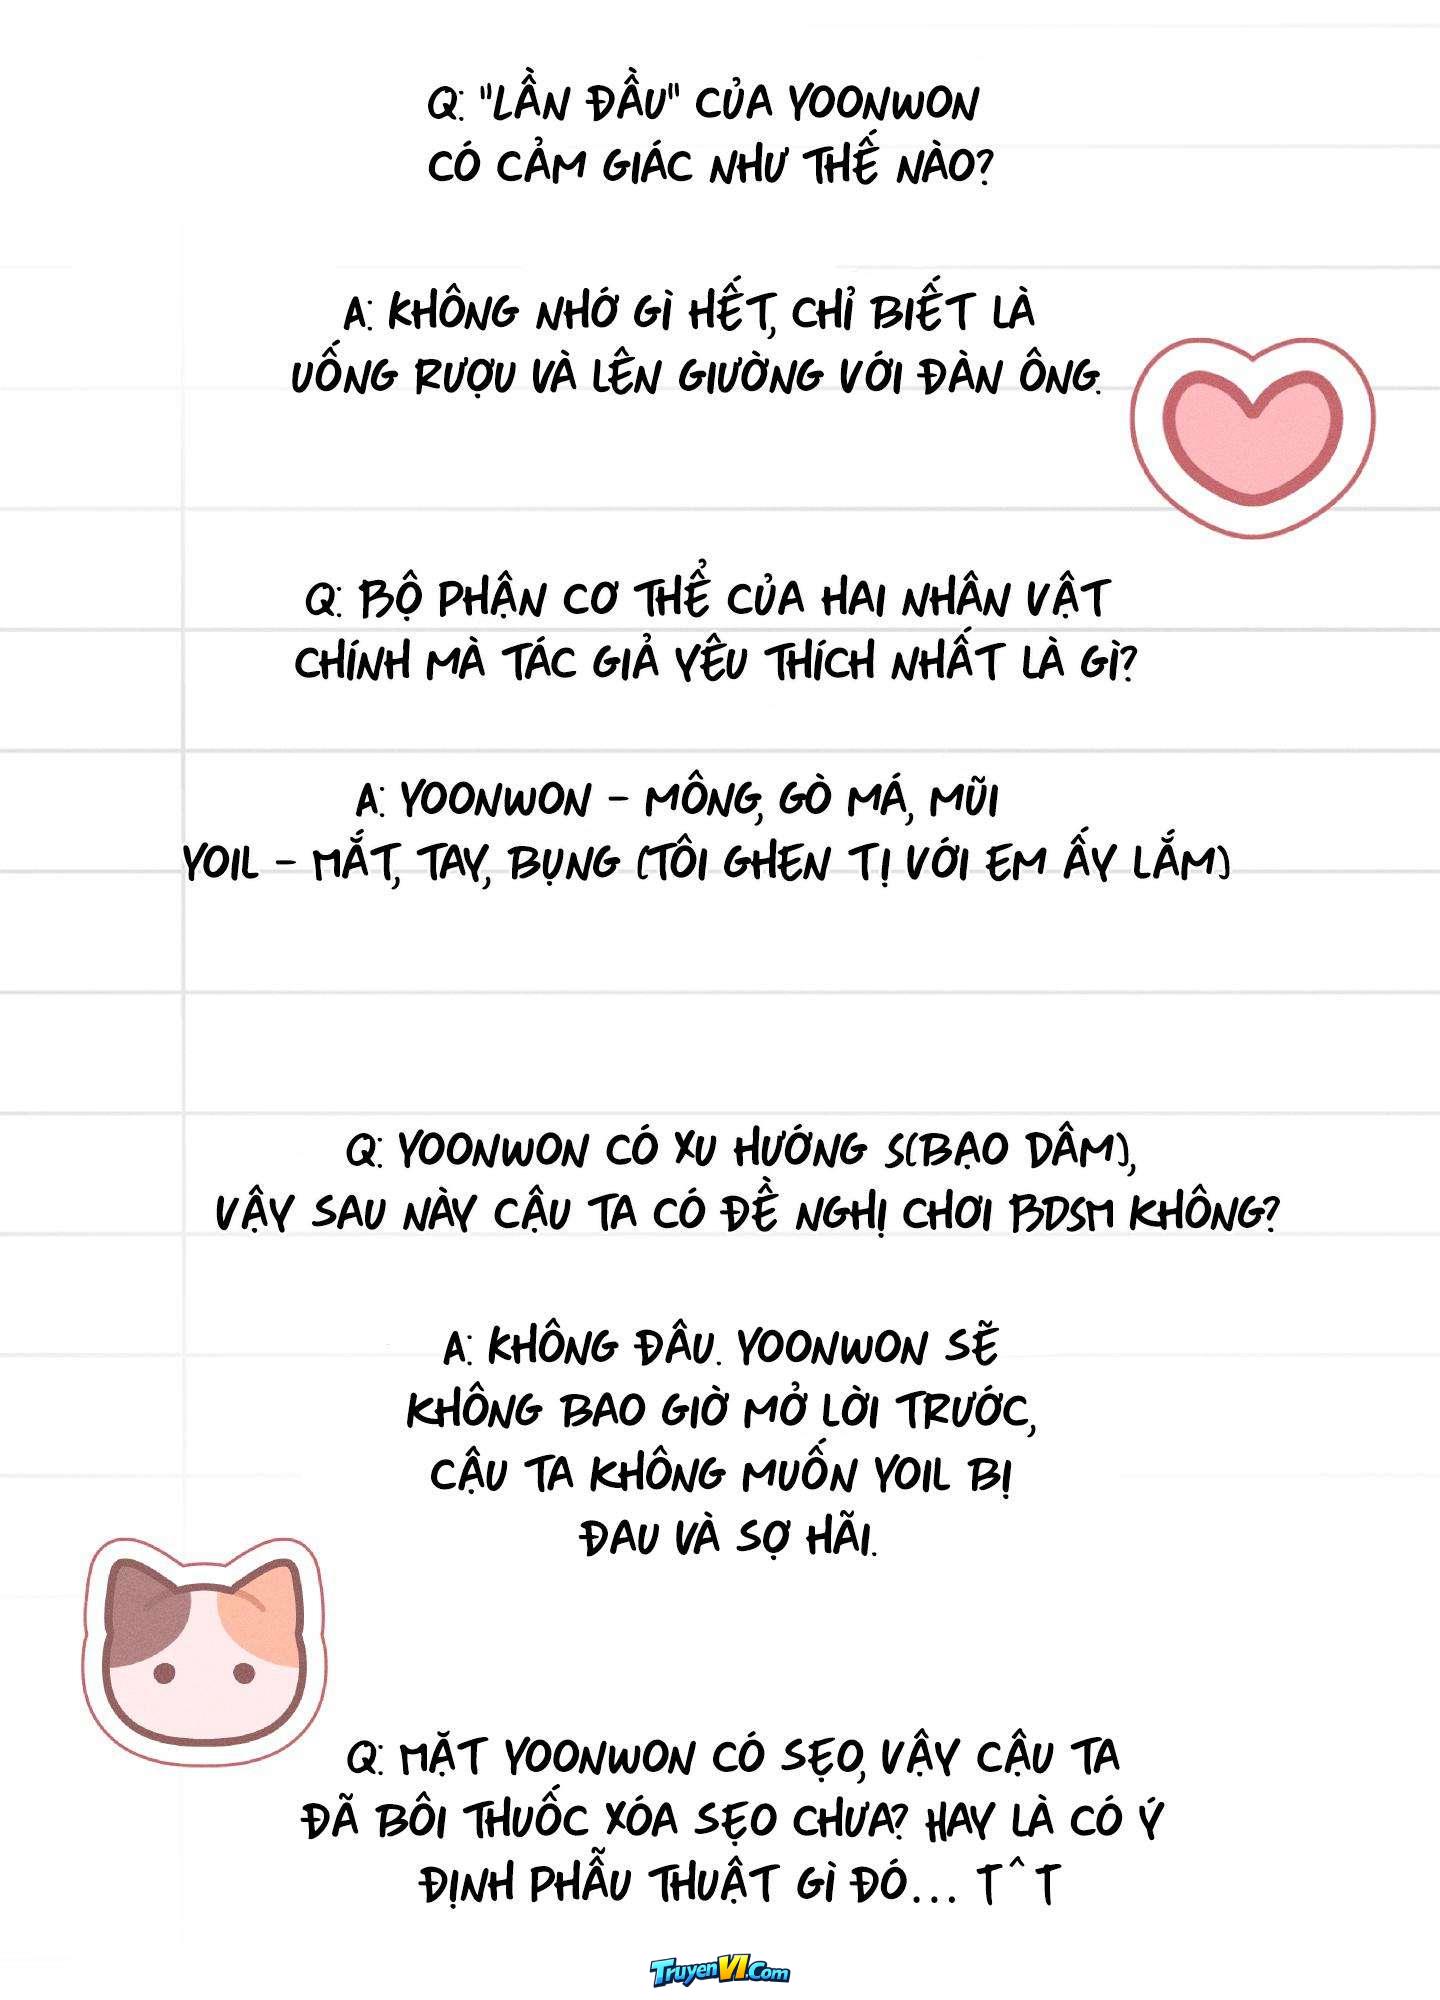 Q: "LẦN ĐẦU" CỦA YOONWON
CÓ CẢM GIÁC NHƯ THẾ NÀO?
A: KHÔNG NHỚ GÌ HẾT, CHỈ BIẾT LÀ
UỐNG RƯỢU VÀ LÊN GIƯỜNG VỚI ĐÀN ÔNG.
Q: BỘ PHẬN CƠ THỂ CỦA HAI NHÂN VẬT
CHÍNH MÀ TÁC GIẢ YÊU THÍCH NHẤT LÀ GÌ?
A: YOONWON - MÔNG, GÒ MÁ, MŨI
YOIL - MẮT, TAY, BỤNG (TÔI GHEN TỊ VỚI EM ẤY LẮM)
Q: YOONWON CÓ XU HƯỚNG S(BẠO DÂM),
VẬY SAU NÀY CẬU TA CÓ ĐỀ NGHỊ CHƠI BDSM KHÔNG?
A: KHÔNG ĐÂU. YOONWON SẼ
KHÔNG BAO GIỜ MỞ LỜI TRƯỚC,
CẬU TA KHÔNG MUỐN YOIL BỊ
ĐAU VÀ SỢ HÃI.
Q: MẶT YOONWON CÓ SẸO, VẬY CẬU TA
ĐÃ BÔI THUỐC XÓA SẸO CHƯA? HAY LÀ CÓ Ý
ĐỊNH PHẪU THUẬT GÌ ĐÓ... T^T
TruyenVI.Com